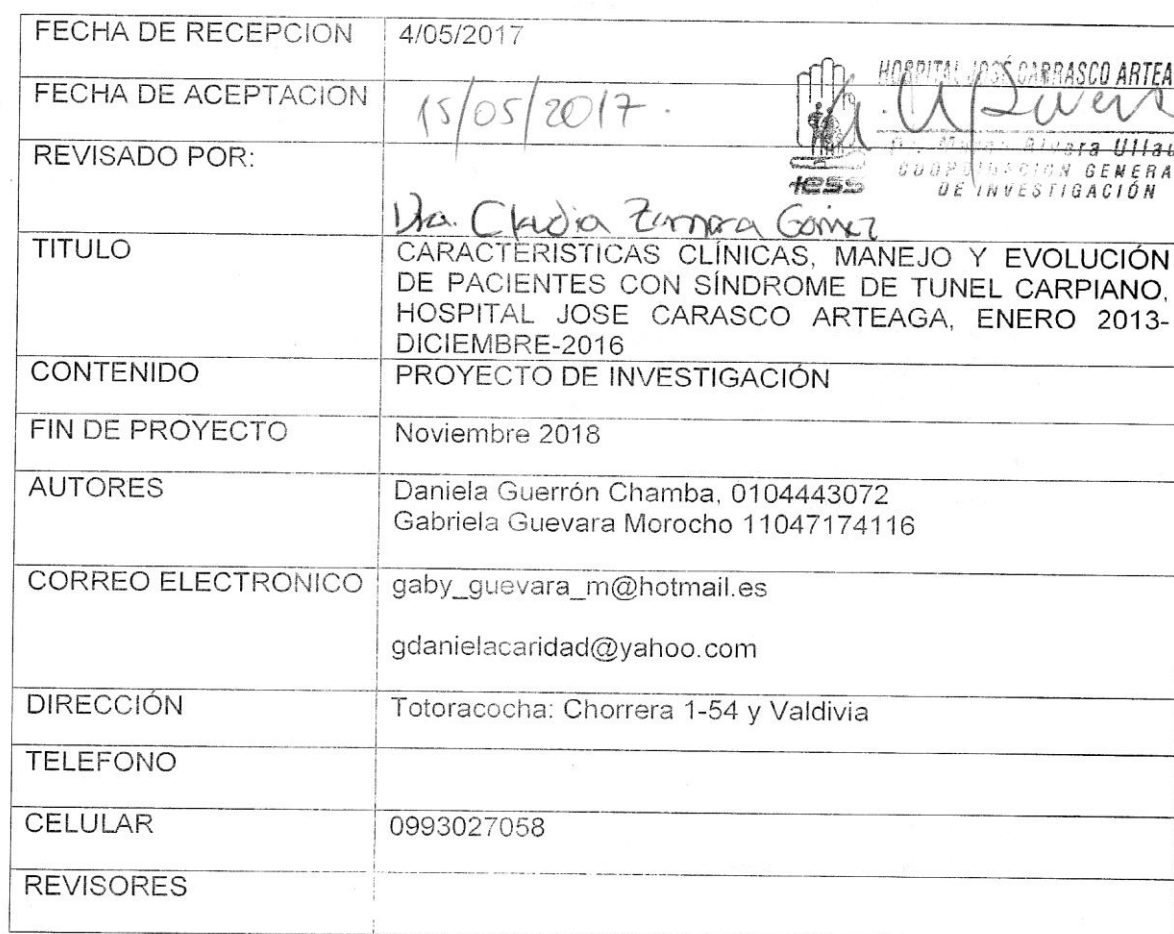 FECHA DE RECEPCION 4/05/2017
HOSPITAL JOSÉ CARRASCO ARTEA
FECHA DE ACEPTACION 15/05/2017.
Rivera Ullau
COORDINACIÓN GENERA
DE INVESTIGACIÓN
iess
REVISADO POR:
Dra. Claudia Gómez
TITULO CARACTERISTICAS CLÍNICAS, MANEJO Y EVOLUCIÓN
DE PACIENTES CON SÍNDROME DE TUNEL CARPIANO,
HOSPITAL JOSE CARASCO ARTEAGA, ENERO 2013-
DICIEMBRE-2016
CONTENIDO PROYECTO DE INVESTIGACIÓN
FIN DE PROYECTO Noviembre 2018
AUTORES Daniela Guerrón Chamba, 0104443072
Gabriela Guevara Morocho 11047174116
CORREO ELECTRONICO gaby_guevara_m@hotmail.es
gdanielacaridad@yahoo.com
DIRECCIÓN Totoracocha: Chorrera 1-54 y Valdivia
TELEFONO
CELULAR 0993027058
REVISORES